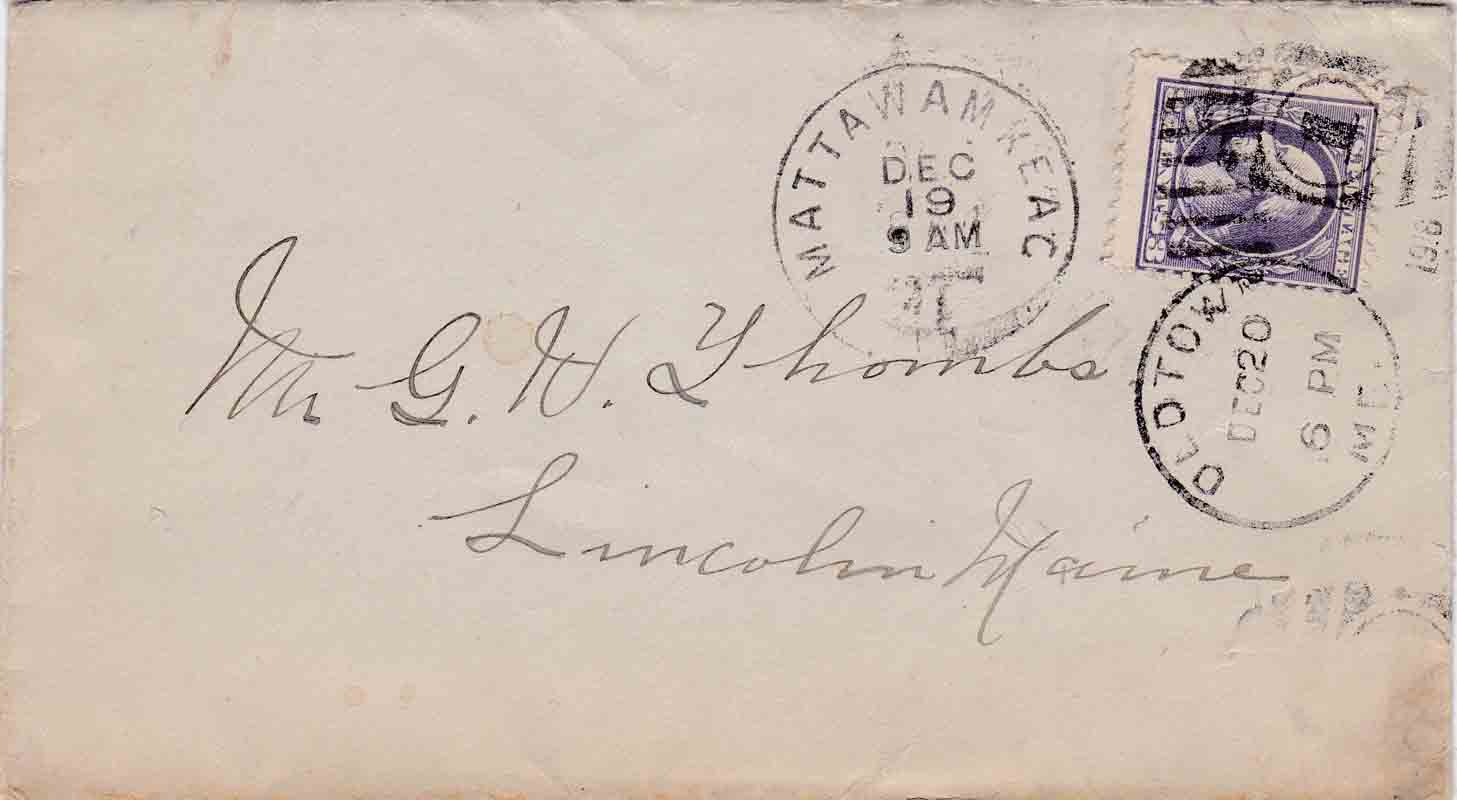 MATTAWAMKEAG
DEC
19
9 AM
OLDTOWN
DEC 20
6 PM
ME.
Mr G. H. Thombs
Lincoln Maine